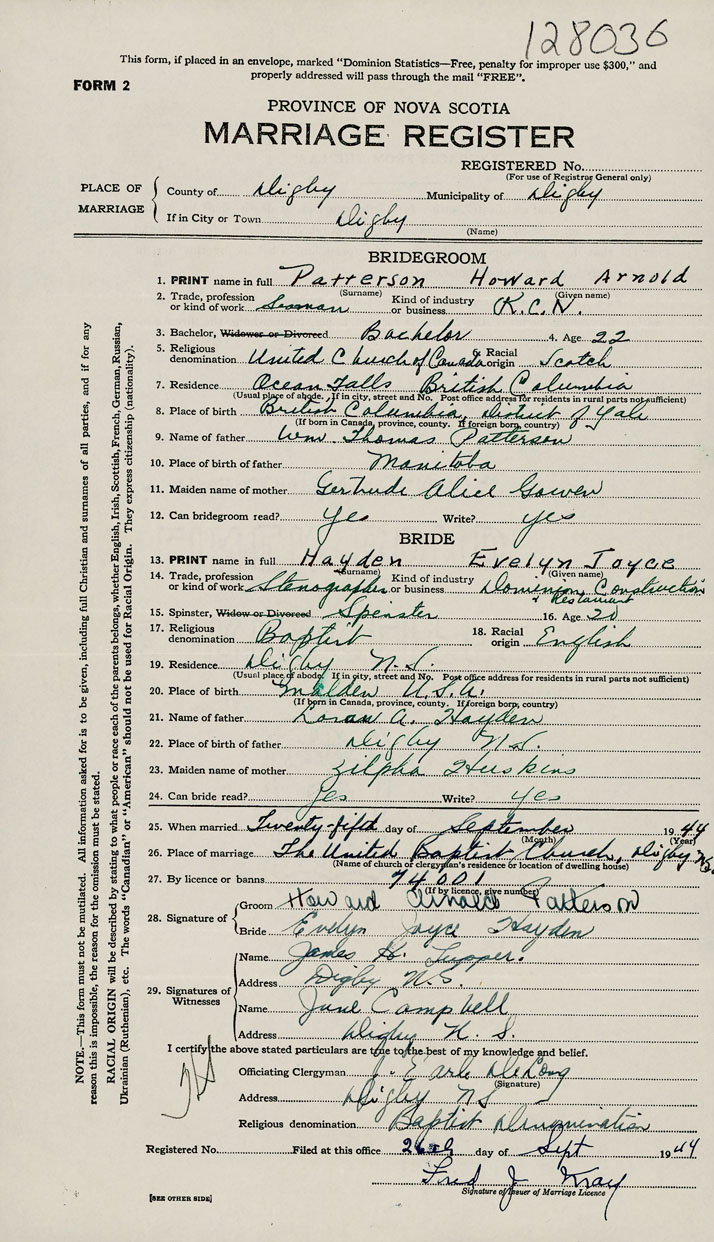 128036
This form, if placed in an envelope, marked "Dominion Statistics—Free, penalty for improper use $300," and
properly addressed will pass through the mail "FREE".
FORM 2
PROVINCE OF NOVA SCOTIA
MARRIAGE REGISTER
REGISTERED No.
(For use of Registrar General only)
PLACE OF MARRIAGE
County of Digby Municipality of Digby
If in City or Town Digby
(Name)
BRIDEGROOM
1. PRINT name in full Patterson Howard Arnold
(Surname) (Given name)
2. Trade, profession or kind of work Seaman Kind of industry or business R.C.N.
3. Bachelor, Widower or Divorced Bachelor 4. Age 22
5. Religious denomination United Church of Canada 6. Racial origin Scotch
7. Residence Ocean Falls British Columbia
(Usual place of abode. If in city, street and No. Post office address for residents in rural parts not sufficient)
8. Place of birth British Columbia, District of Yale
(If born in Canada, province, county. If foreign born, country)
9. Name of father Wm. Thomas Patterson
10. Place of birth of father Manitoba
11. Maiden name of mother Gertrude Alice Gowen
12. Can bridegroom read? yes Write? yes
BRIDE
13. PRINT name in full Hayden Evelyn Joyce
(Surname) (Given name)
14. Trade, profession or kind of work Stenographer Kind of industry or business Dominion Construction
& Restaurant
15. Spinster, Widow or Divorced Spinster 16. Age 20
17. Religious denomination Baptist 18. Racial origin English
19. Residence Digby N.S.
(Usual place of abode. If in city, street and No. Post office address for residents in rural parts not sufficient)
20. Place of birth Malden U.S.A.
(If born in Canada, province, county. If foreign born, country)
21. Name of father Loran A. Hayden
22. Place of birth of father Digby N.S.
23. Maiden name of mother Zilpha Huskins
24. Can bride read? Yes Write? yes
25. When married Twenty-fifth day of September 1944
(Month) (Year)
26. Place of marriage The United Baptist Church, Digby N.S.
(Name of church or clergyman's residence or location of dwelling house)
27. By licence or banns 74001
(If by licence, give number)
28. Signature of
Groom Howard Arnold Patterson
Bride Evelyn Joyce Hayden
29. Signatures of Witnesses
Name James H. Tupper.
Address Digby N.S.
Name June Campbell
Address Digby N. S.
I certify the above stated particulars are true to the best of my knowledge and belief.
Officiating Clergyman J. Earle DeLong
(Signature)
Address Digby NS
Religious denomination Baptist Denomination
Registered No. Filed at this office day of Sept 1944
Fred J Kray
Signature of Issuer of Marriage Licence
[SEE OTHER SIDE]
NOTE.—This form must not be mutilated. All information asked for is to be given, including full Christian and surnames of all parties, and if for any
reason this is impossible, the reason for the omission must be stated.
RACIAL ORIGIN will be described by stating to what people or race each of the parents belongs, whether English, Irish, Scottish, French, German, Russian,
Ukrainian (Ruthenian), etc. The words "Canadian" or "American" should not be used for Racial Origin. They express citizenship (nationality).